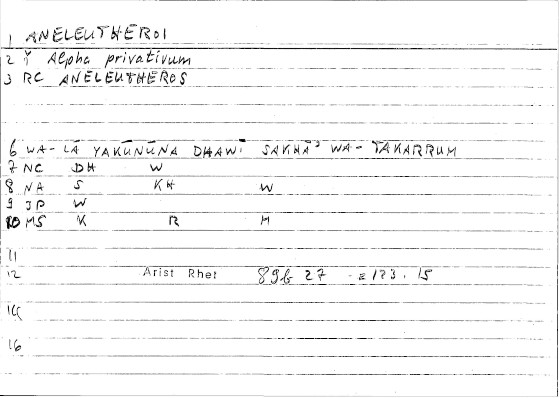 1 ANELEUTHEROI
2 Y Alpha privativum
3 RC ANELEUTHEROS
6 WA-LĀ YAKŪNŪNA DHAWĪ SAKHĀ' WA-TAKARRUM
7 NC DH W
8 NA S KH W
9 JP W
10 MS K R M
11
12 Arist Rhet 89b 27 = 173.15
14
16